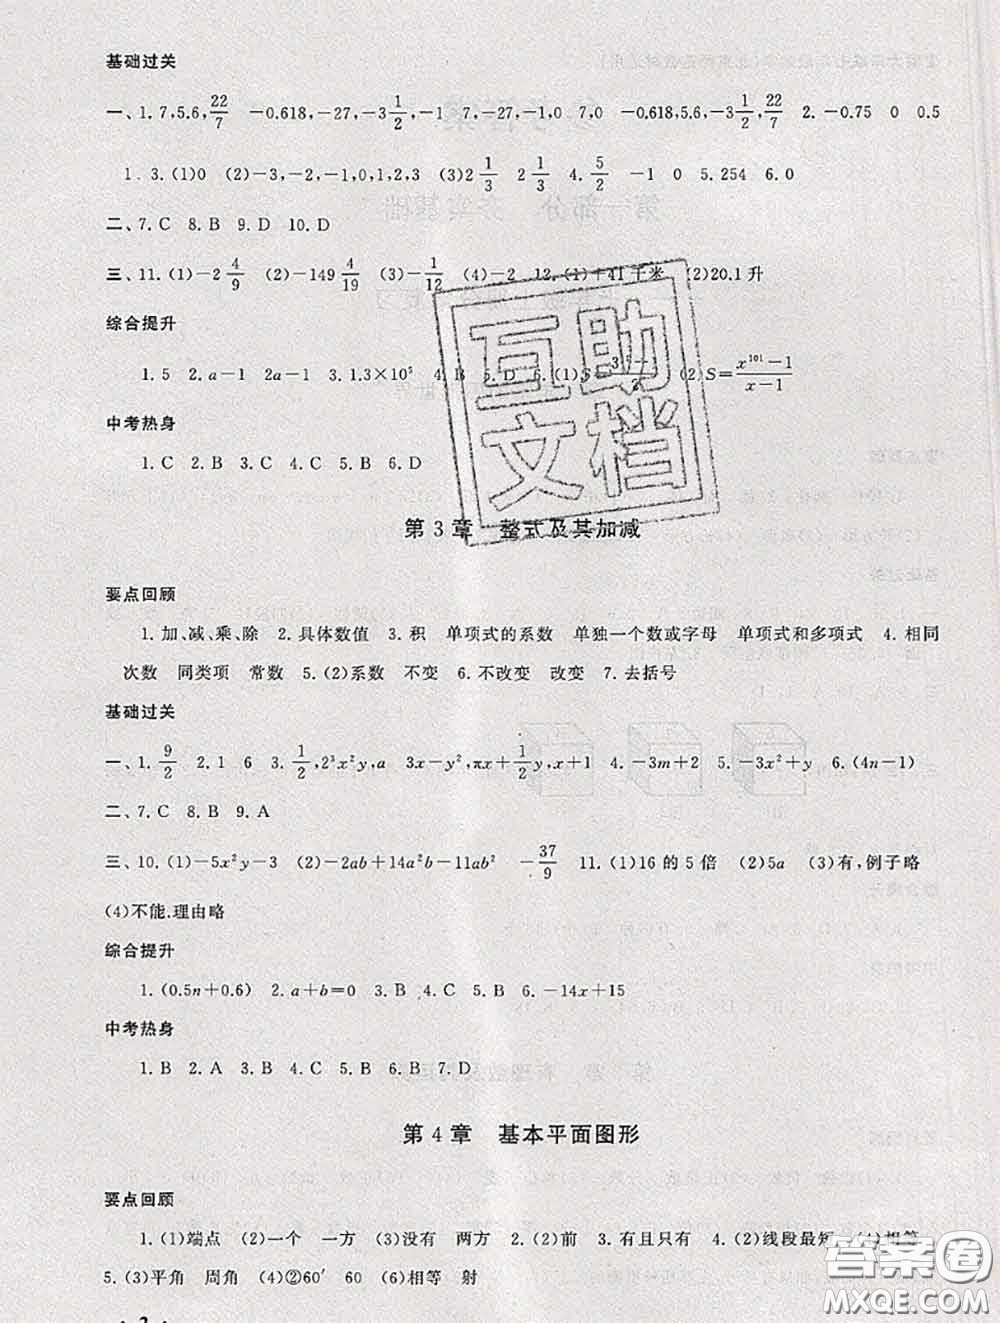 基础过关
一、1.7,5.6,22/7 -0.618,-27,-3 1/2,-1 7,-27,-1,0 7,0 -0.618,5.6,-3 1/2,22/7 2.-0.75 0 0.5
1.3.(1)0 (2)-3,-2,-1,0,1,2,3 (3)2 1/3 2 1/3 4.5/2 -1 0 5.254 6.0
二、7.C 8.B 9.D 10.D
三、11.(1)-2 4/9 (2)-149 4/19 (3)-1/12 (4)-2 12.(1)+41千米 (2)20.1升
综合提升
1.5 2.a-1 2a-1 3.1.3×10⁵ 4.B 5.D 6.(1)S= (2)S=(x¹⁰¹-1)/(x-1)
中考热身
1.C 2.B 3.C 4.C 5.B 6.D
互助
文档
第3章 整式及其加减
要点回顾
1.加、减、乘、除 2.具体数值 3.积 单项式的系数 单独一个数或字母 单项式和多项式 4.相同
次数 同类项 常数 5.(2)系数 不变 6.不改变 改变 7.去括号
基础过关
一、1.9/2 2.1 6 3.1/2,2³x²y,a 3x-y²,πx+1/2y,x+1 4.-3m+2 5.-3x²+y 6.(4n-1)
二、7.C 8.B 9.A
三、10.(1)-5x²y-3 (2)-2ab+14a²b-11ab² -37/9 11.(1)16的5倍 (2)5a (3)有,例子略
(4)不能.理由略
综合提升
1.(0.5n+0.6) 2.a+b=0 3.B 4.C 5.B 6.-14x+15
中考热身
1.B 2.A 3.B 4.C 5.B 6.B 7.D
第4章 基本平面图形
要点回顾
1.(1)端点 (2)一个 一方 (3)没有 两方 2.(2)前 3.有且只有 4.(2)线段最短 (4)相等
5.(3)平角 周角 (4)②60′ 60 (6)相等 射
·2·
答案圈
MXQE.COM